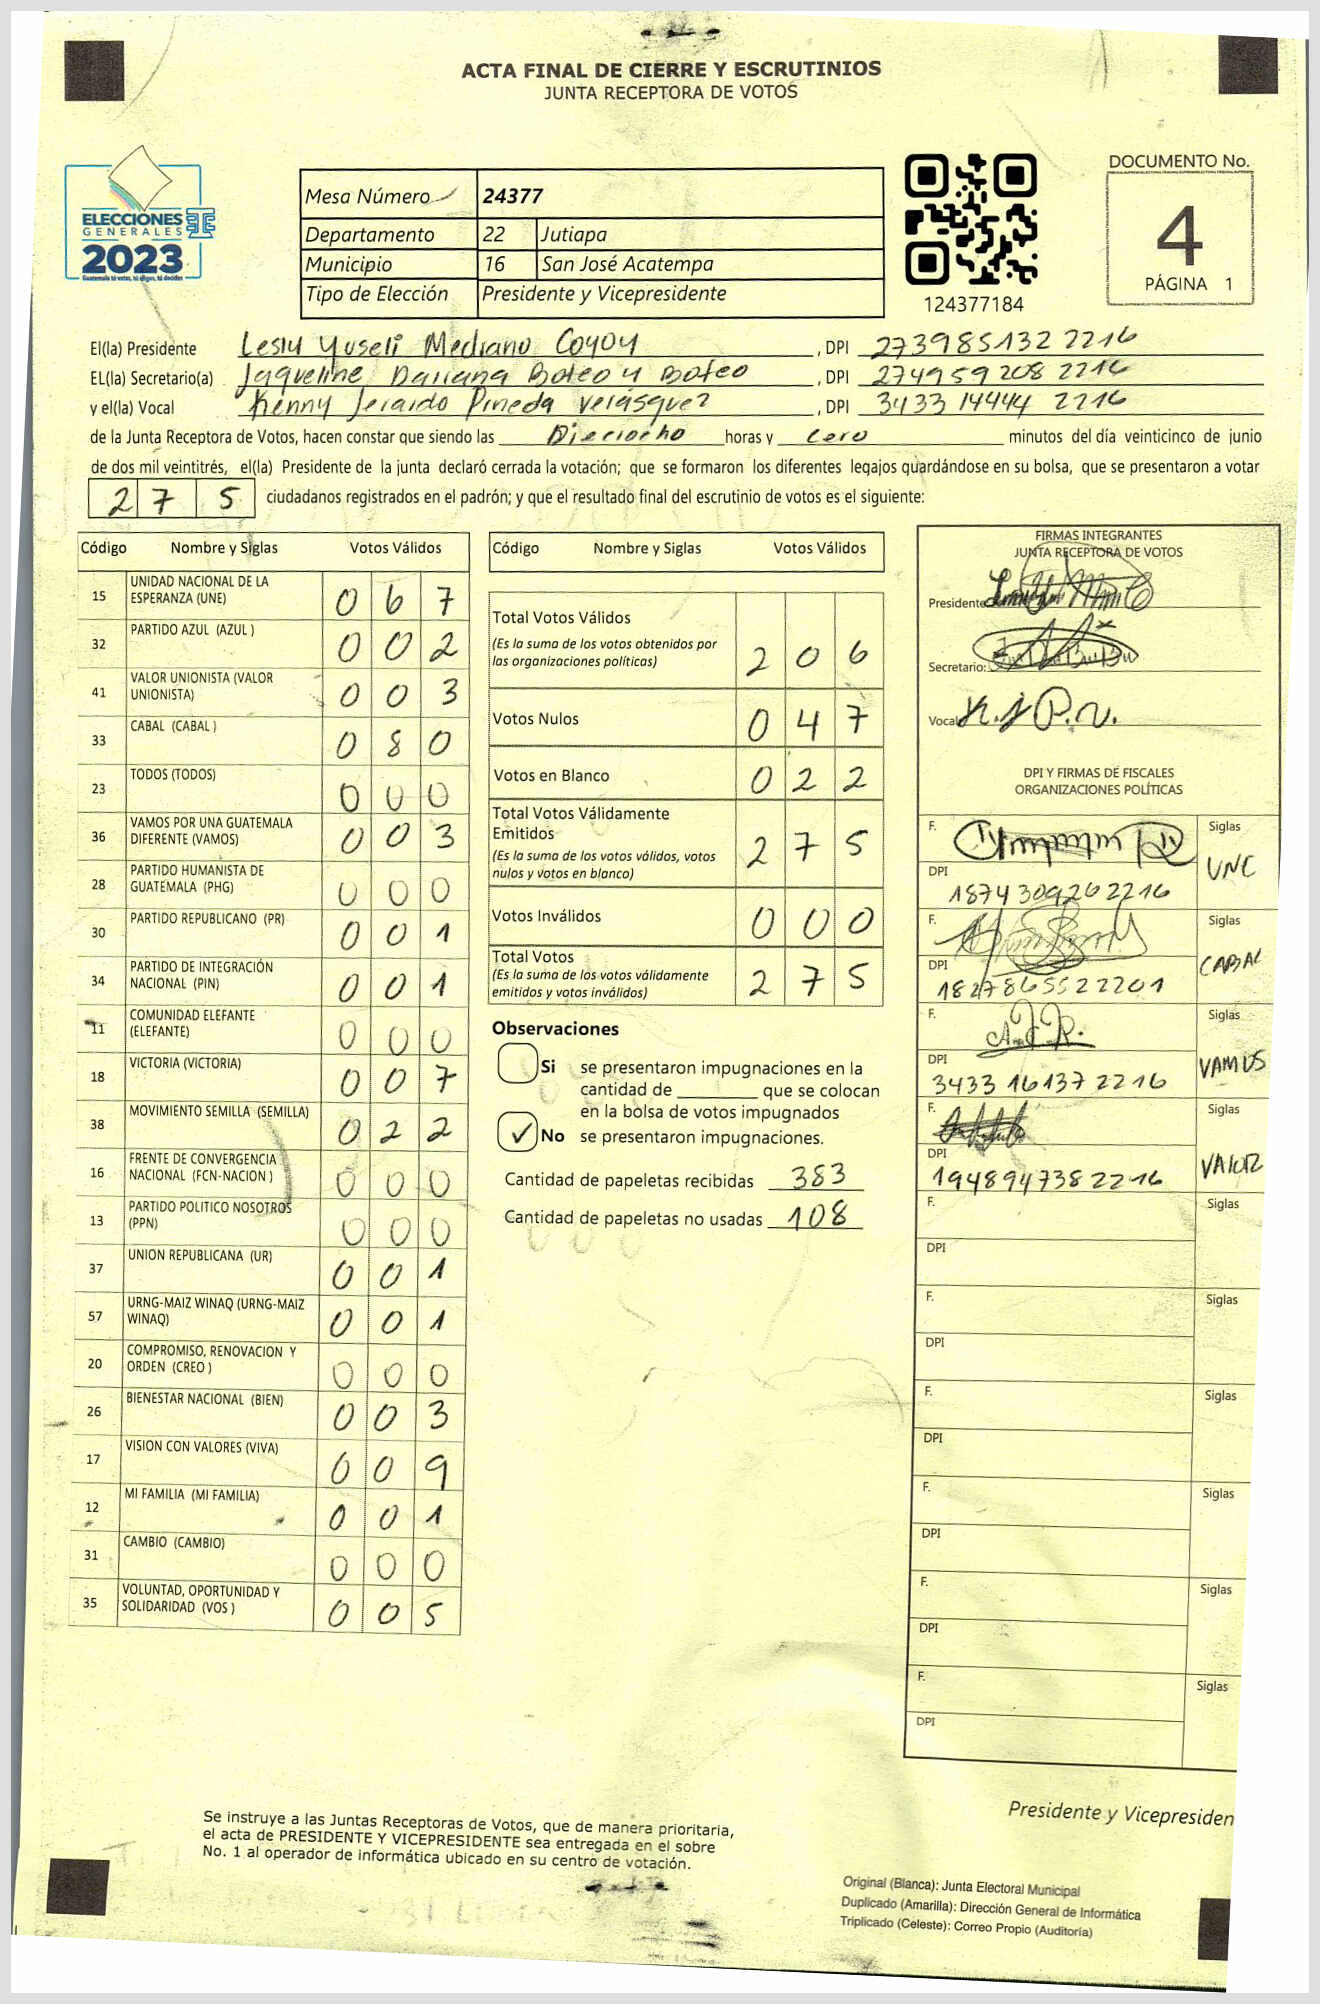 ACTA FINAL DE CIERRE Y ESCRUTINIOS
JUNTA RECEPTORA DE VOTOS
ELECCIONES
GENERALES
2023
Guatemala tú votas, tú eliges, tú decides
Mesa Número 24377
Departamento 22 Jutiapa
Municipio 16 San José Acatempa
Tipo de Elección Presidente y Vicepresidente
124377184
DOCUMENTO No.
4
PÁGINA 1
El(la) Presidente Lesly Yuseli Medrano Coyoy, DPI 273985132 2216
EL(la) Secretario(a) Jaqueline Dariana Boteo y Boteo, DPI 274959208 2216
y el(la) Vocal Kenny Jerardo Pineda Velásquez, DPI 3433 14444 2216
de la Junta Receptora de Votos, hacen constar que siendo las Dieciocho horas y cero minutos del día veinticinco de junio
de dos mil veintitrés, el(la) Presidente de la junta declaró cerrada la votación; que se formaron los diferentes legajos quardándose en su bolsa, que se presentaron a votar
2 7 5 ciudadanos registrados en el padrón; y que el resultado final del escrutinio de votos es el siguiente:
Código Nombre y Siglas Votos Válidos
15 UNIDAD NACIONAL DE LA ESPERANZA (UNE) 0 6 7
32 PARTIDO AZUL (AZUL ) 0 0 2
41 VALOR UNIONISTA (VALOR UNIONISTA) 0 0 3
33 CABAL (CABAL ) 0 8 0
23 TODOS (TODOS) 0 0 0
36 VAMOS POR UNA GUATEMALA DIFERENTE (VAMOS) 0 0 3
28 PARTIDO HUMANISTA DE GUATEMALA (PHG) 0 0 0
30 PARTIDO REPUBLICANO (PR) 0 0 1
34 PARTIDO DE INTEGRACIÓN NACIONAL (PIN) 0 0 1
11 COMUNIDAD ELEFANTE (ELEFANTE) 0 0 0
18 VICTORIA (VICTORIA) 0 0 7
38 MOVIMIENTO SEMILLA (SEMILLA) 0 2 2
16 FRENTE DE CONVERGENCIA NACIONAL (FCN-NACION ) 0 0 0
13 PARTIDO POLITICO NOSOTROS (PPN) 0 0 0
37 UNION REPUBLICANA (UR) 0 0 1
57 URNG-MAIZ WINAQ (URNG-MAIZ WINAQ) 0 0 1
20 COMPROMISO, RENOVACION Y ORDEN (CREO ) 0 0 0
26 BIENESTAR NACIONAL (BIEN) 0 0 3
17 VISION CON VALORES (VIVA) 0 0 9
12 MI FAMILIA (MI FAMILIA) 0 0 1
31 CAMBIO (CAMBIO) 0 0 0
35 VOLUNTAD, OPORTUNIDAD Y SOLIDARIDAD (VOS ) 0 0 5
Código Nombre y Siglas Votos Válidos
Total Votos Válidos
(Es la suma de los votos obtenidos por
las organizaciones políticas) 2 0 6
Votos Nulos 0 4 7
Votos en Blanco 0 2 2
Total Votos Válidamente
Emitidos
(Es la suma de los votos válidos, votos
nulos y votos en blanco) 2 7 5
Votos Inválidos 0 0 0
Total Votos
(Es la suma de los votos válidamente
emitidos y votos inválidos) 2 7 5
Observaciones
Si se presentaron impugnaciones en la
cantidad de ________ que se colocan
en la bolsa de votos impugnados
✓ No se presentaron impugnaciones.
Cantidad de papeletas recibidas 383
Cantidad de papeletas no usadas 108
FIRMAS INTEGRANTES
JUNTA RECEPTORA DE VOTOS
Presidente:
Secretario:
Vocal K.J P.V.
DPI Y FIRMAS DE FISCALES
ORGANIZACIONES POLÍTICAS
F. Siglas
DPI 1874309262216 UNE
F. Siglas
DPI 1827865522201 CABAL
F. A.J.R. Siglas
DPI 3433 16137 2216 VAMOS
F. Siglas
DPI 1948947382216 VALOR
F. Siglas
DPI
F. Siglas
DPI
F. Siglas
DPI
F. Siglas
DPI
F. Siglas
DPI
F. Siglas
DPI
Presidente y Vicepresiden
Se instruye a las Juntas Receptoras de Votos, que de manera prioritaria,
el acta de PRESIDENTE Y VICEPRESIDENTE sea entregada en el sobre
No. 1 al operador de informática ubicado en su centro de votación.
Original (Blanca): Junta Electoral Municipal
Duplicado (Amarilla): Dirección General de Informática
Triplicado (Celeste): Correo Propio (Auditoría)